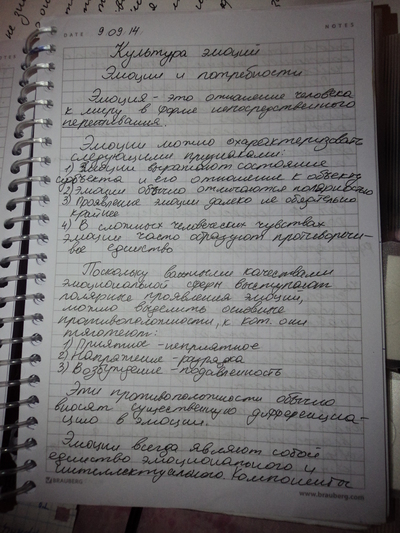 DATE 9.09.14 NOTES
Культура эмоций
Эмоции и потребности
Эмоция - это отношение человека
к миру в форме непосредственного
переживания.
Эмоции можно охарактеризовать
следующими признаками:
1) Эмоции выражают состояние
субъекта и его отношение к объекту
2) Эмоции обычно отличаются полярностью
3) Проявление эмоции далеко не обязательно
крайнее
4) В сложных человеческих чувствах
эмоции часто образуют противоречи-
вое единство
Поскольку важными качествами
эмоциональной сферы выступают
полярные проявления эмоции,
можно выделить основные
противоположности, к кот. они
тяготеют:
1) Приятное - неприятное
2) Напряжение - разрядка
3) Возбуждение - подавленность
Эти противоположности обычно
вносят существенную дифференциа-
цию в эмоции.
Эмоции всегда являют собой
единство эмоционального и
интеллектуального компоненты
BRAUBERG www.brauberg.com